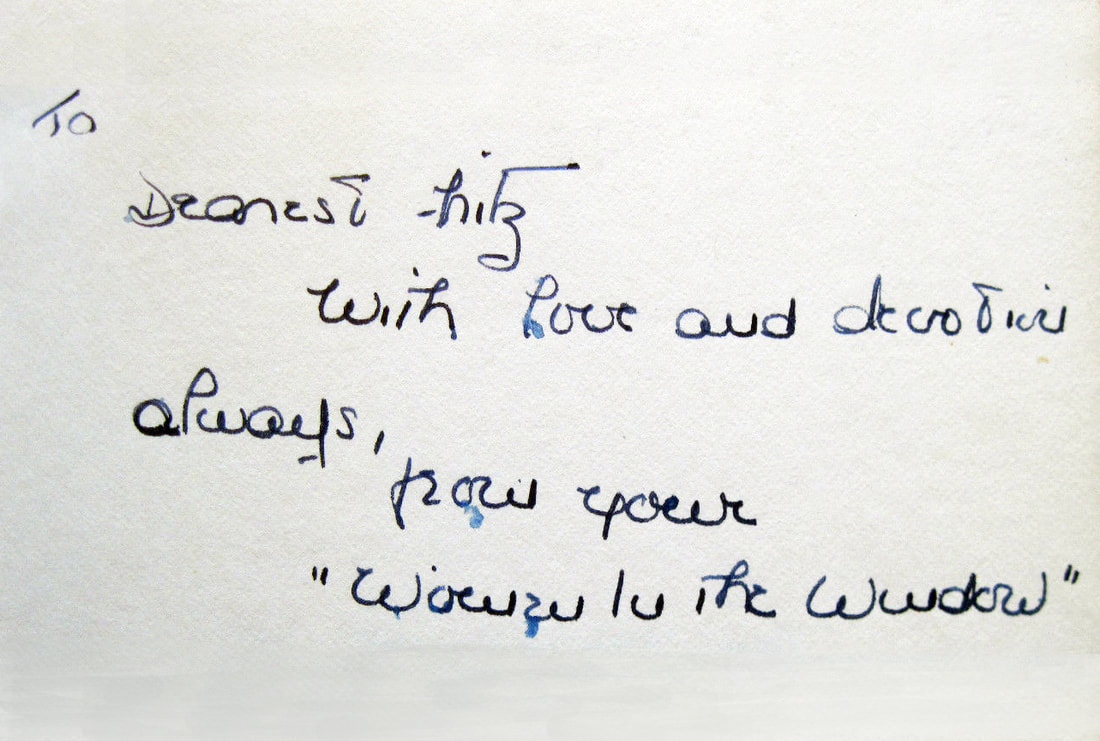 To
Dearest Fritz
with love and devotion
always,
from your
"Woman In the Window"